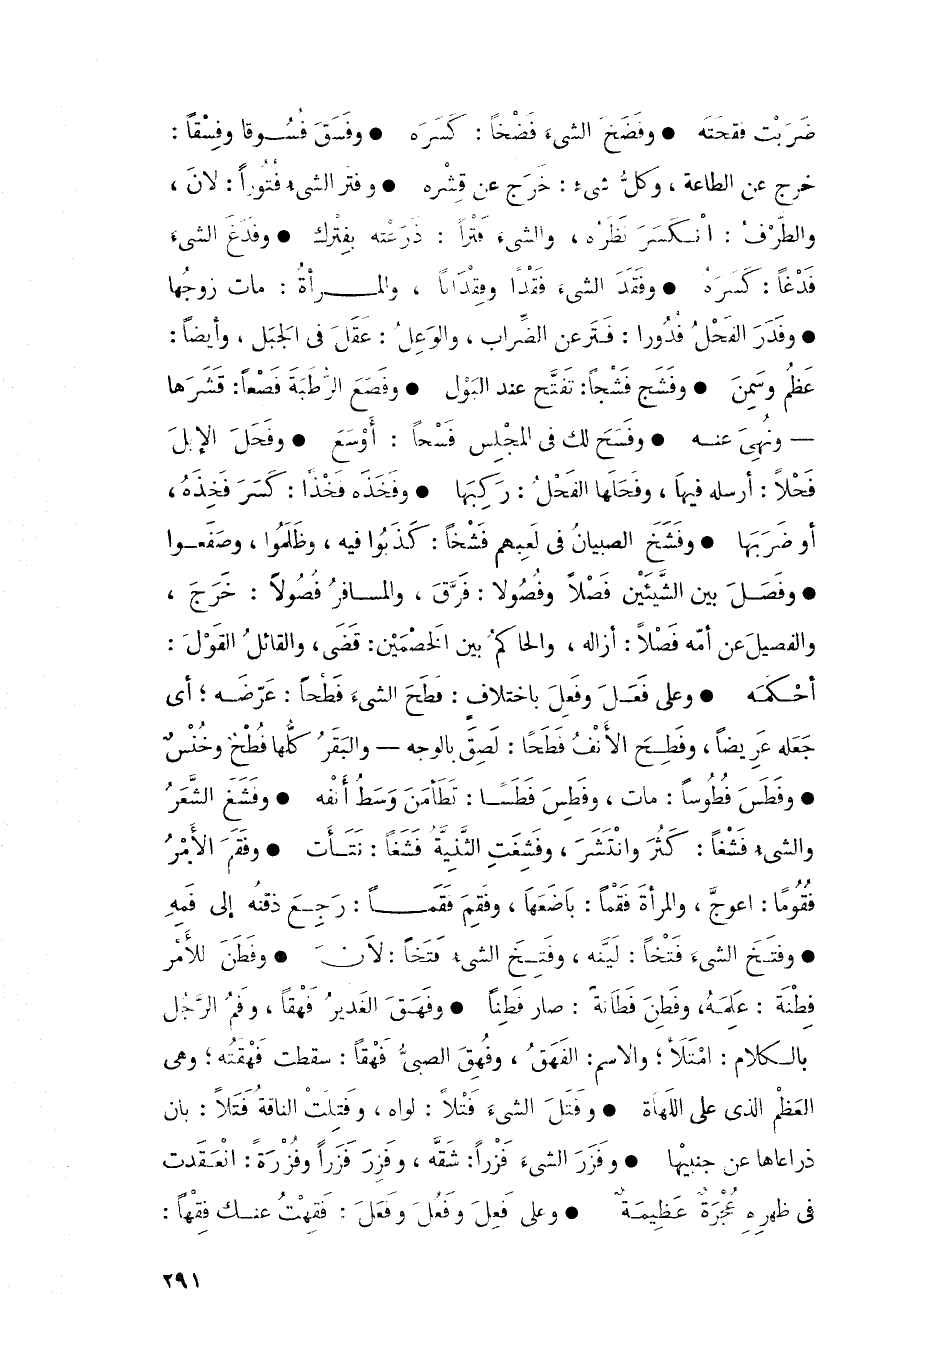 ضَرَبْت فقحَتَه ● وفَضَخَ الشىءَ فَضْخاً : كَسَرَه ● وفَسَقَ فُسُوقا وفِسْقاً :
خرج عن الطاعة ، وكلُّ شىءٍ : خَرَج عن قِشْرِه ● وفتر الشىءُ فُتُوراً : لانَ ،
والطَّرْفُ : انْكَسَرَ نَظَرُه ، والشىءَ فَتْراً : ذَرَعْته بِفِتْرك ● وفَدَغَ الشىءَ
فَدْغاً : كَسَرَهُ ● وفَقَدَ الشىءَ فَقْدًا وفِقْدَاناً ، والمــرأةُ : مات زوجُها
● وفَدَرَ الفَحْلُ فُدُورا : فَتَر عن الضِّراب ، والوَعِلُ : عَقَلَ فى الجَبل ، وأيضاً :
عَظُم وسَمِنَ ● وفَشَج فَشْجاً : تَفَتَّح عند البَوْل ● وفَصَعَ الرُّطَبَةَ فَصْعاً : قَشَرَها
— ونُهِىَ عنه ● وفَسَحَ لك فى المجْلِس فَسْحاً : أَوْسَعَ ● وفَحَلَ الإبلَ
فَحْلاً : أرسله فيها ، وفَحَلها الفَحْلُ : رَكِبَها ● وفَخَذَه فَخْذًا : كَسَرَ فَخِذَهُ ،
أو ضَرَبَها ● وفَشَخَ الصبيانُ فى لَعِبِهم فَشْخاً : كَذَبُوا فيه ، وظَلَمُوا ، وصَفَعوا
● وفَصَلَ بين الشَّيْئَيْن فَصْلاً وفُصُولا : فَرَّقَ ، والمسافرُ فُصُولاً : خَرَجَ ،
والفصيلَ عن أمّه فَصْلاً : أزاله ، والحاكمُ بين الخَصْمَيْن : قَضَى ، والقائلُ القَوْلَ :
أحْكَمَه ● وعلى فَعَلَ وفَعِلَ باختلاف : فَطَحَ الشىءَ فَطْحاً : عَرَّضَه ؛ أى
جَعَله عَرِيضاً ، وفَطِحَ الأنْفُ فَطَحًا : لَصِقَ بالوجه — والبَقَرُ كلُّها فُطْحٌ وخُنْسٌ
● وفَطَسَ فُطُوساً : مات ، وفَطِسَ فَطَسًا : تَطَأمَنَ وَسَطُ أنْفه ● وفَشَغَ الشَّعَرُ
والشىءُ فَشْغاً : كَثُرَ وانْتَشَرَ ، وفَشِغَتِ الثَّنِيَّةُ فَشَغاً : نَتَأت ● وفَقَمَ الأمْرُ
فُقُومًا : اعوجَّ ، والمرأةَ فَقْماً : بَاضَعَها ، وفَقِمَ فَقَماً : رَجِعَ ذقنُه إلى فَمِهِ
● وفَتَخَ الشىءَ فَتْخاً : لَيَّنه ، وفَتِخَ الشىءُ فَتَخاً : لاَنَ ● وفَطَنَ للأَمْر
فِطْنَة : عَلِمَهُ ، وفَطِنَ فَطَانَةً : صار فَطِناً ● وفَهَقَ الغَدِيرُ فَهْقاً ، وفَمُ الرَّجُل
بالكلام : امْتَلأَ ؛ والاسم : الفَهَقُ ، وفُهِقَ الصبىُّ فَهْقاً : سقطت فَهْقَتُه ؛ وهى
العَظْم الذى على اللَّهاة ● وفَتَلَ الشىءَ فَتْلاً : لواه ، وفَتِلَتْ الناقةُ فَتَلاً : بان
ذراعاها عن جنبيْها ● وفَزَرَ الشىءَ فَزْراً : شَقَّه ، وفَزِرَ فَزَراً وفُزْرَةً : انْعَقَدت
فى ظهرِه عُجْرَةٌ عَظِيمَةٌ ● وعلى فَعِلَ وفَعُلَ وفَعَلَ : فَقِهْتُ عنك فِقْهاً :
٢٩١